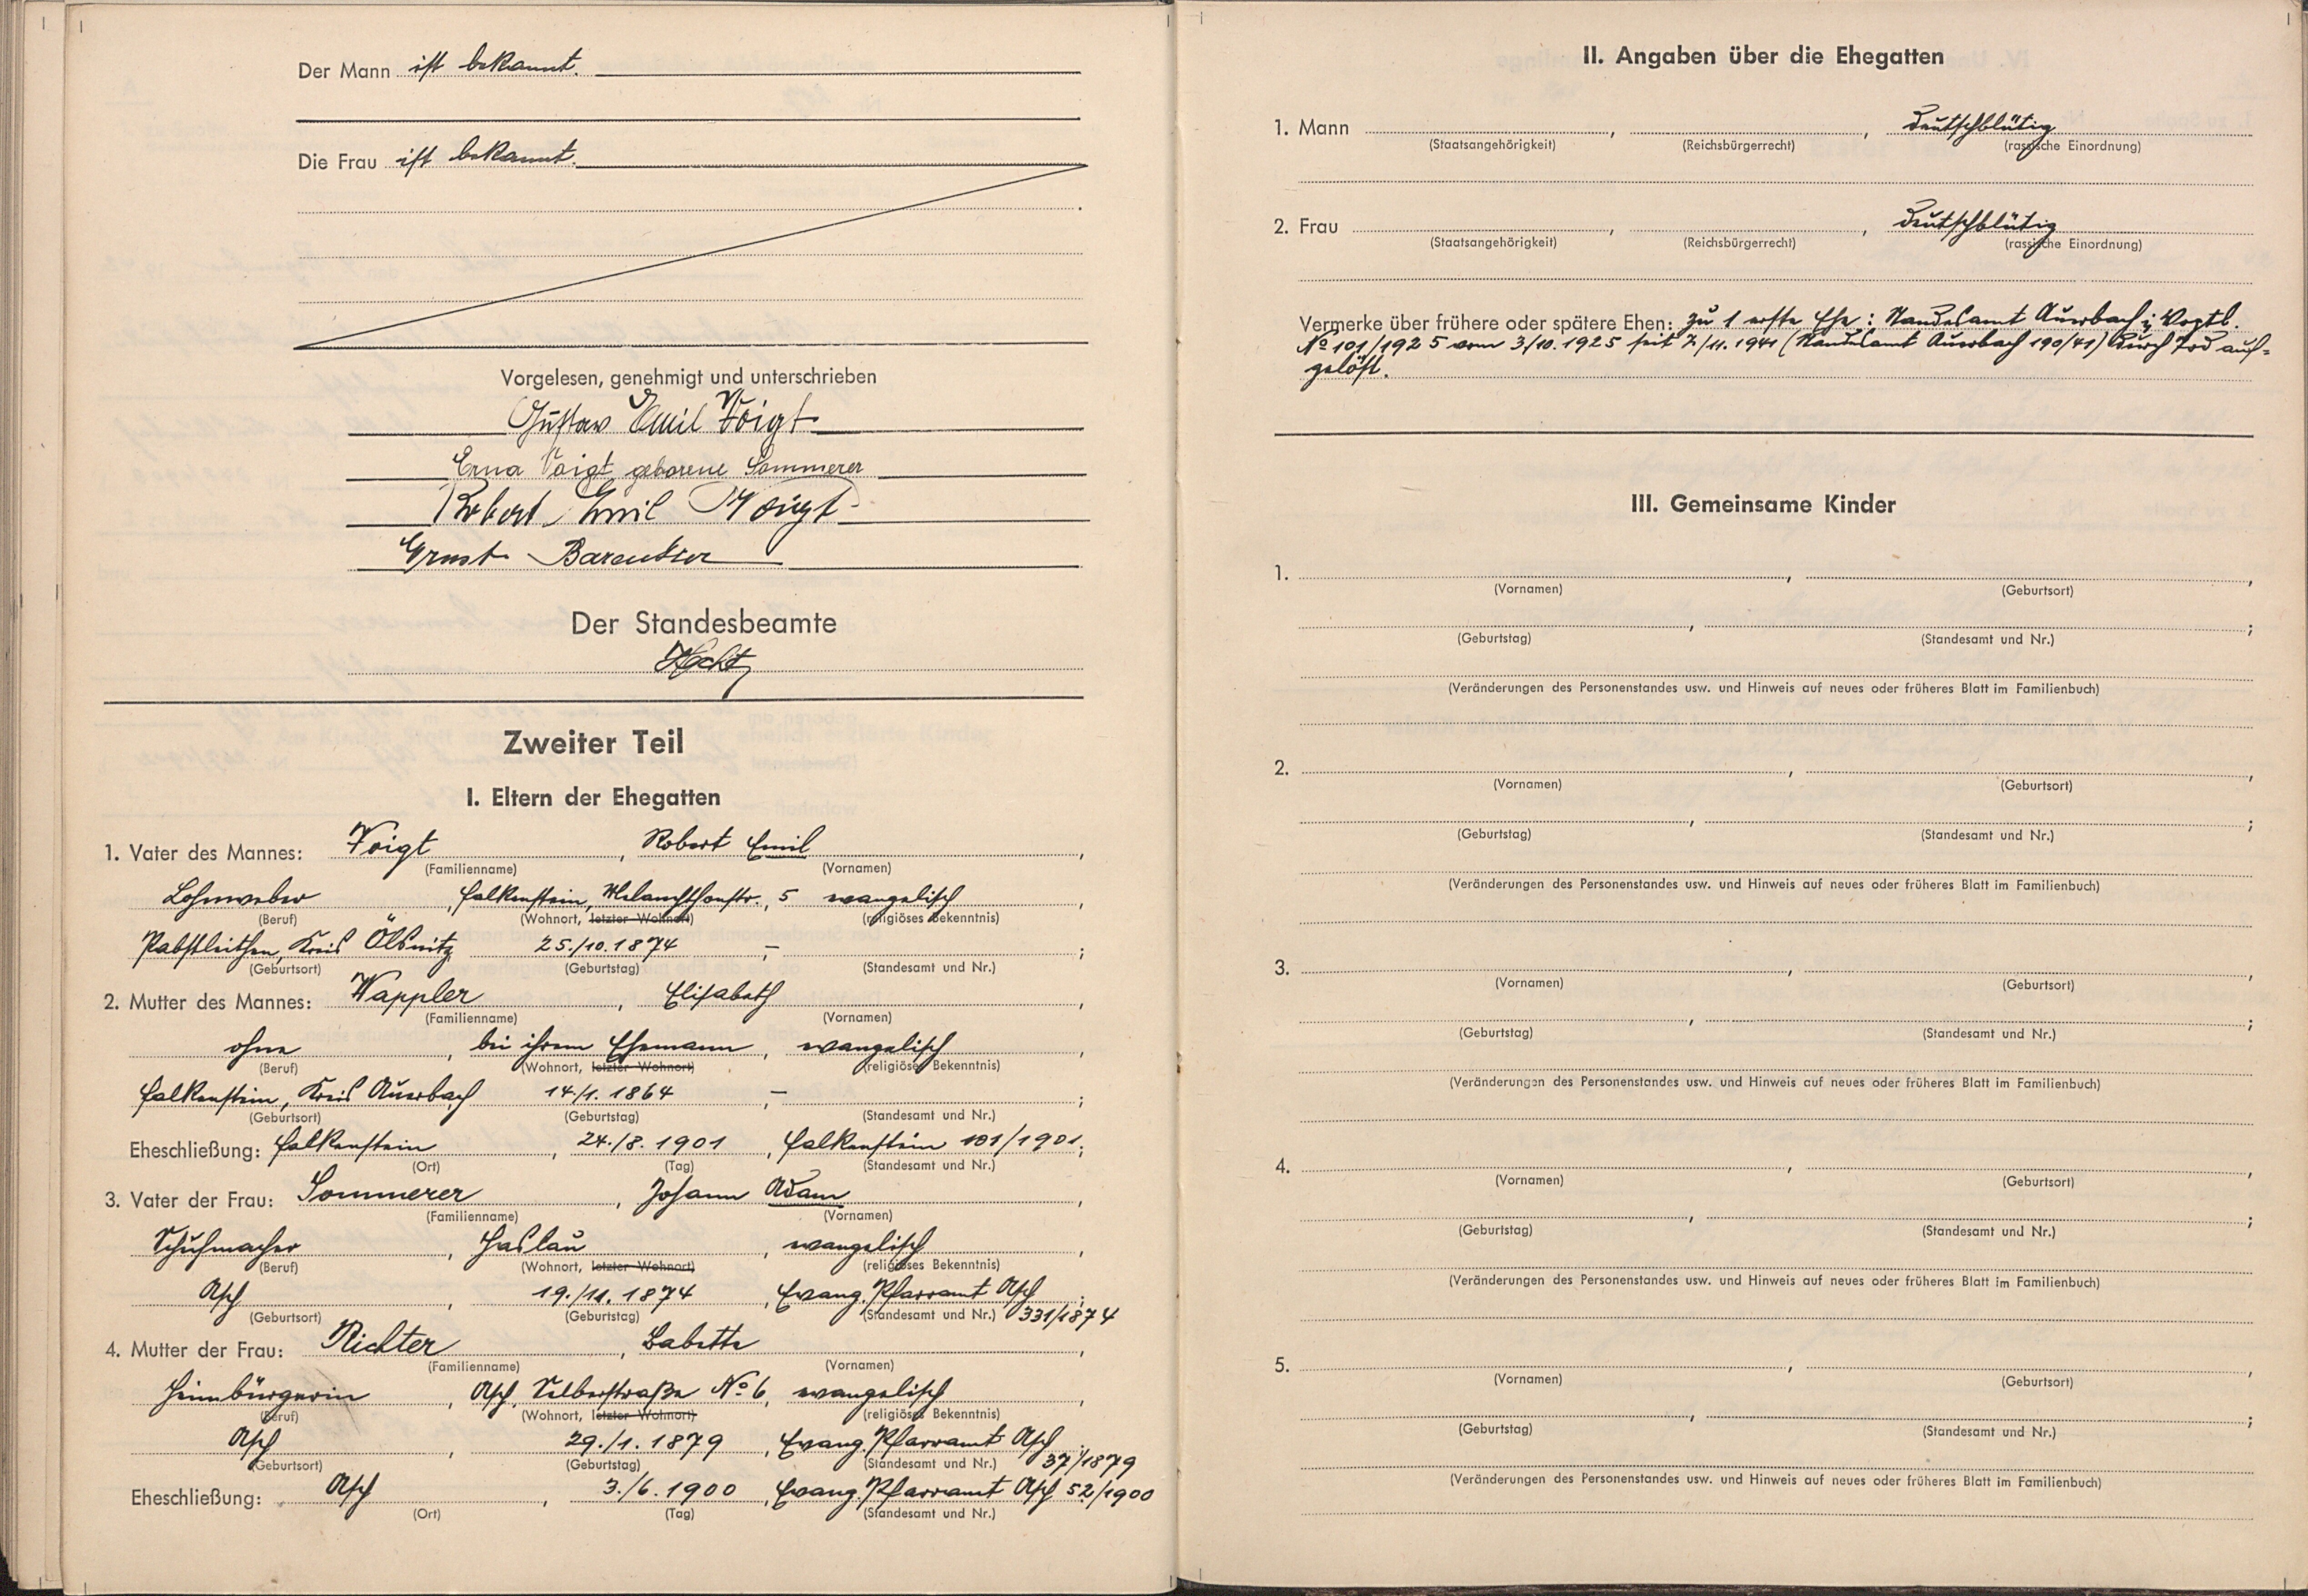 Der Mann ist bekannt.
Die Frau ist bekannt.
Vorgelesen, genehmigt und unterschrieben
Gustav Emil Voigt
Erna Voigt geborene Sommerer
Robert Emil Voigt
Ernst
Der Standesbeamte
Zweiter Teil
I. Eltern der Ehegatten
1. Vater des Mannes: Voigt, Robert Emil,
(Familienname) (Vornamen)
Lohnweber, Falkenstein, Melanchthonstr., 5 evangelisch,
(Beruf) (Wohnort, letzter Wohnort) (religiöses Bekenntnis)
Pabstleithen, Kreis Ölsnitz 25./10.1874 –;
(Geburtsort) (Geburtstag) (Standesamt und Nr.)
2. Mutter des Mannes: Wappler, Elisabeth,
(Familienname) (Vornamen)
ohne, bei ihrem Ehemann, evangelisch,
(Beruf) (Wohnort, letzter Wohnort) (religiöses Bekenntnis)
Falkenstein, Kreis Auerbach 14./1. 1864 –;
(Geburtsort) (Geburtstag) (Standesamt und Nr.)
Eheschließung: Falkenstein, 24./8. 1901, Falkenstein 101/1901;
(Ort) (Tag) (Standesamt und Nr.)
3. Vater der Frau: Sommerer, Johann Adam,
(Familienname) (Vornamen)
Schuhmacher, Haslau, evangelisch,
(Beruf) (Wohnort, letzter Wohnort) (religiöses Bekenntnis)
Asch, 19./11. 1874, Evang. Pfarramt Asch;
(Geburtsort) (Geburtstag) (Standesamt und Nr.) 331/1874
4. Mutter der Frau: Richter, Babette,
(Familienname) (Vornamen)
Heimbürgerin, Asch, Selberstraße No 6, evangelisch,
(Beruf) (Wohnort, letzter Wohnort) (religiöses Bekenntnis)
Asch, 29./1. 1879, Evang. Pfarramt Asch;
(Geburtsort) (Geburtstag) (Standesamt und Nr.) 37/1879
Eheschließung: Asch, 3./6. 1900, Evang. Pfarramt Asch 52/1900
(Ort) (Tag) (Standesamt und Nr.)
II. Angaben über die Ehegatten
1. Mann , , deutschblütig
(Staatsangehörigkeit) (Reichsbürgerrecht) (rassische Einordnung)
2. Frau , , deutschblütig
(Staatsangehörigkeit) (Reichsbürgerrecht) (rassische Einordnung)
Vermerke über frühere oder spätere Ehen: Zu 1 erste Ehe: Standesamt Auerbach i. Vogtl.
No 101/1925 vom 3/10.1925 seit 2/11.1941 (Standesamt Auerbach 190/41) durch Tod auf-
gelöst.
III. Gemeinsame Kinder
1. , ,
(Vornamen) (Geburtsort)
, ;
(Geburtstag) (Standesamt und Nr.)
(Veränderungen des Personenstandes usw. und Hinweis auf neues oder früheres Blatt im Familienbuch)
2. , ,
(Vornamen) (Geburtsort)
, ;
(Geburtstag) (Standesamt und Nr.)
(Veränderungen des Personenstandes usw. und Hinweis auf neues oder früheres Blatt im Familienbuch)
3. , ,
(Vornamen) (Geburtsort)
, ;
(Geburtstag) (Standesamt und Nr.)
(Veränderungen des Personenstandes usw. und Hinweis auf neues oder früheres Blatt im Familienbuch)
4. , ,
(Vornamen) (Geburtsort)
, ;
(Geburtstag) (Standesamt und Nr.)
(Veränderungen des Personenstandes usw. und Hinweis auf neues oder früheres Blatt im Familienbuch)
5. , ,
(Vornamen) (Geburtsort)
, ;
(Geburtstag) (Standesamt und Nr.)
(Veränderungen des Personenstandes usw. und Hinweis auf neues oder früheres Blatt im Familienbuch)